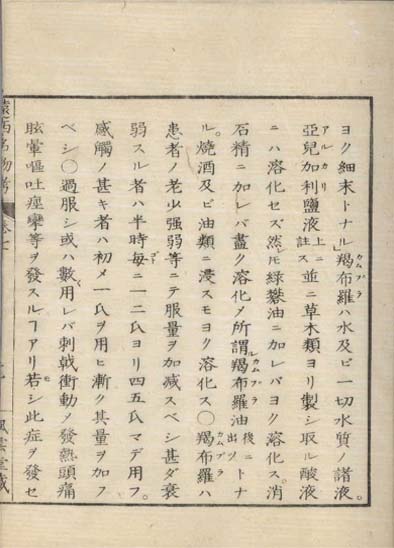 ヨク細末トナル」羯布羅ハ水及ビ一切水質ノ諸液。
亞兒加利鹽液上ニ註ス並ニ草木類ヨリ製シ取ル酸液
ニハ溶化セズ然𪜈綠礬油ニ加レバヨク溶化ス。消
石精ニ加レバ盡ク溶化メ所謂羯布羅油後ニ出ツトナ
ル。燒酒及ビ油類ニ浸スモヨク溶化ス〇羯布羅ハ
患者ノ老少强弱等ニテ服量ヲ加減スベシ甚ダ衰
弱スル者ハ半時每ニ一二氏ヨリ四五氏マデ用フ。
感觸ノ甚キ者ハ初メ一氏ヲ用ヒ漸ク其量ヲ加フ
ベシ〇過服シ或ハ數用レバ刺戟衝動ノ發熱頭痛
眩暈嘔吐痙攣等ヲ發スルヿアリ若シ此症ヲ發セ
名物考 卷七